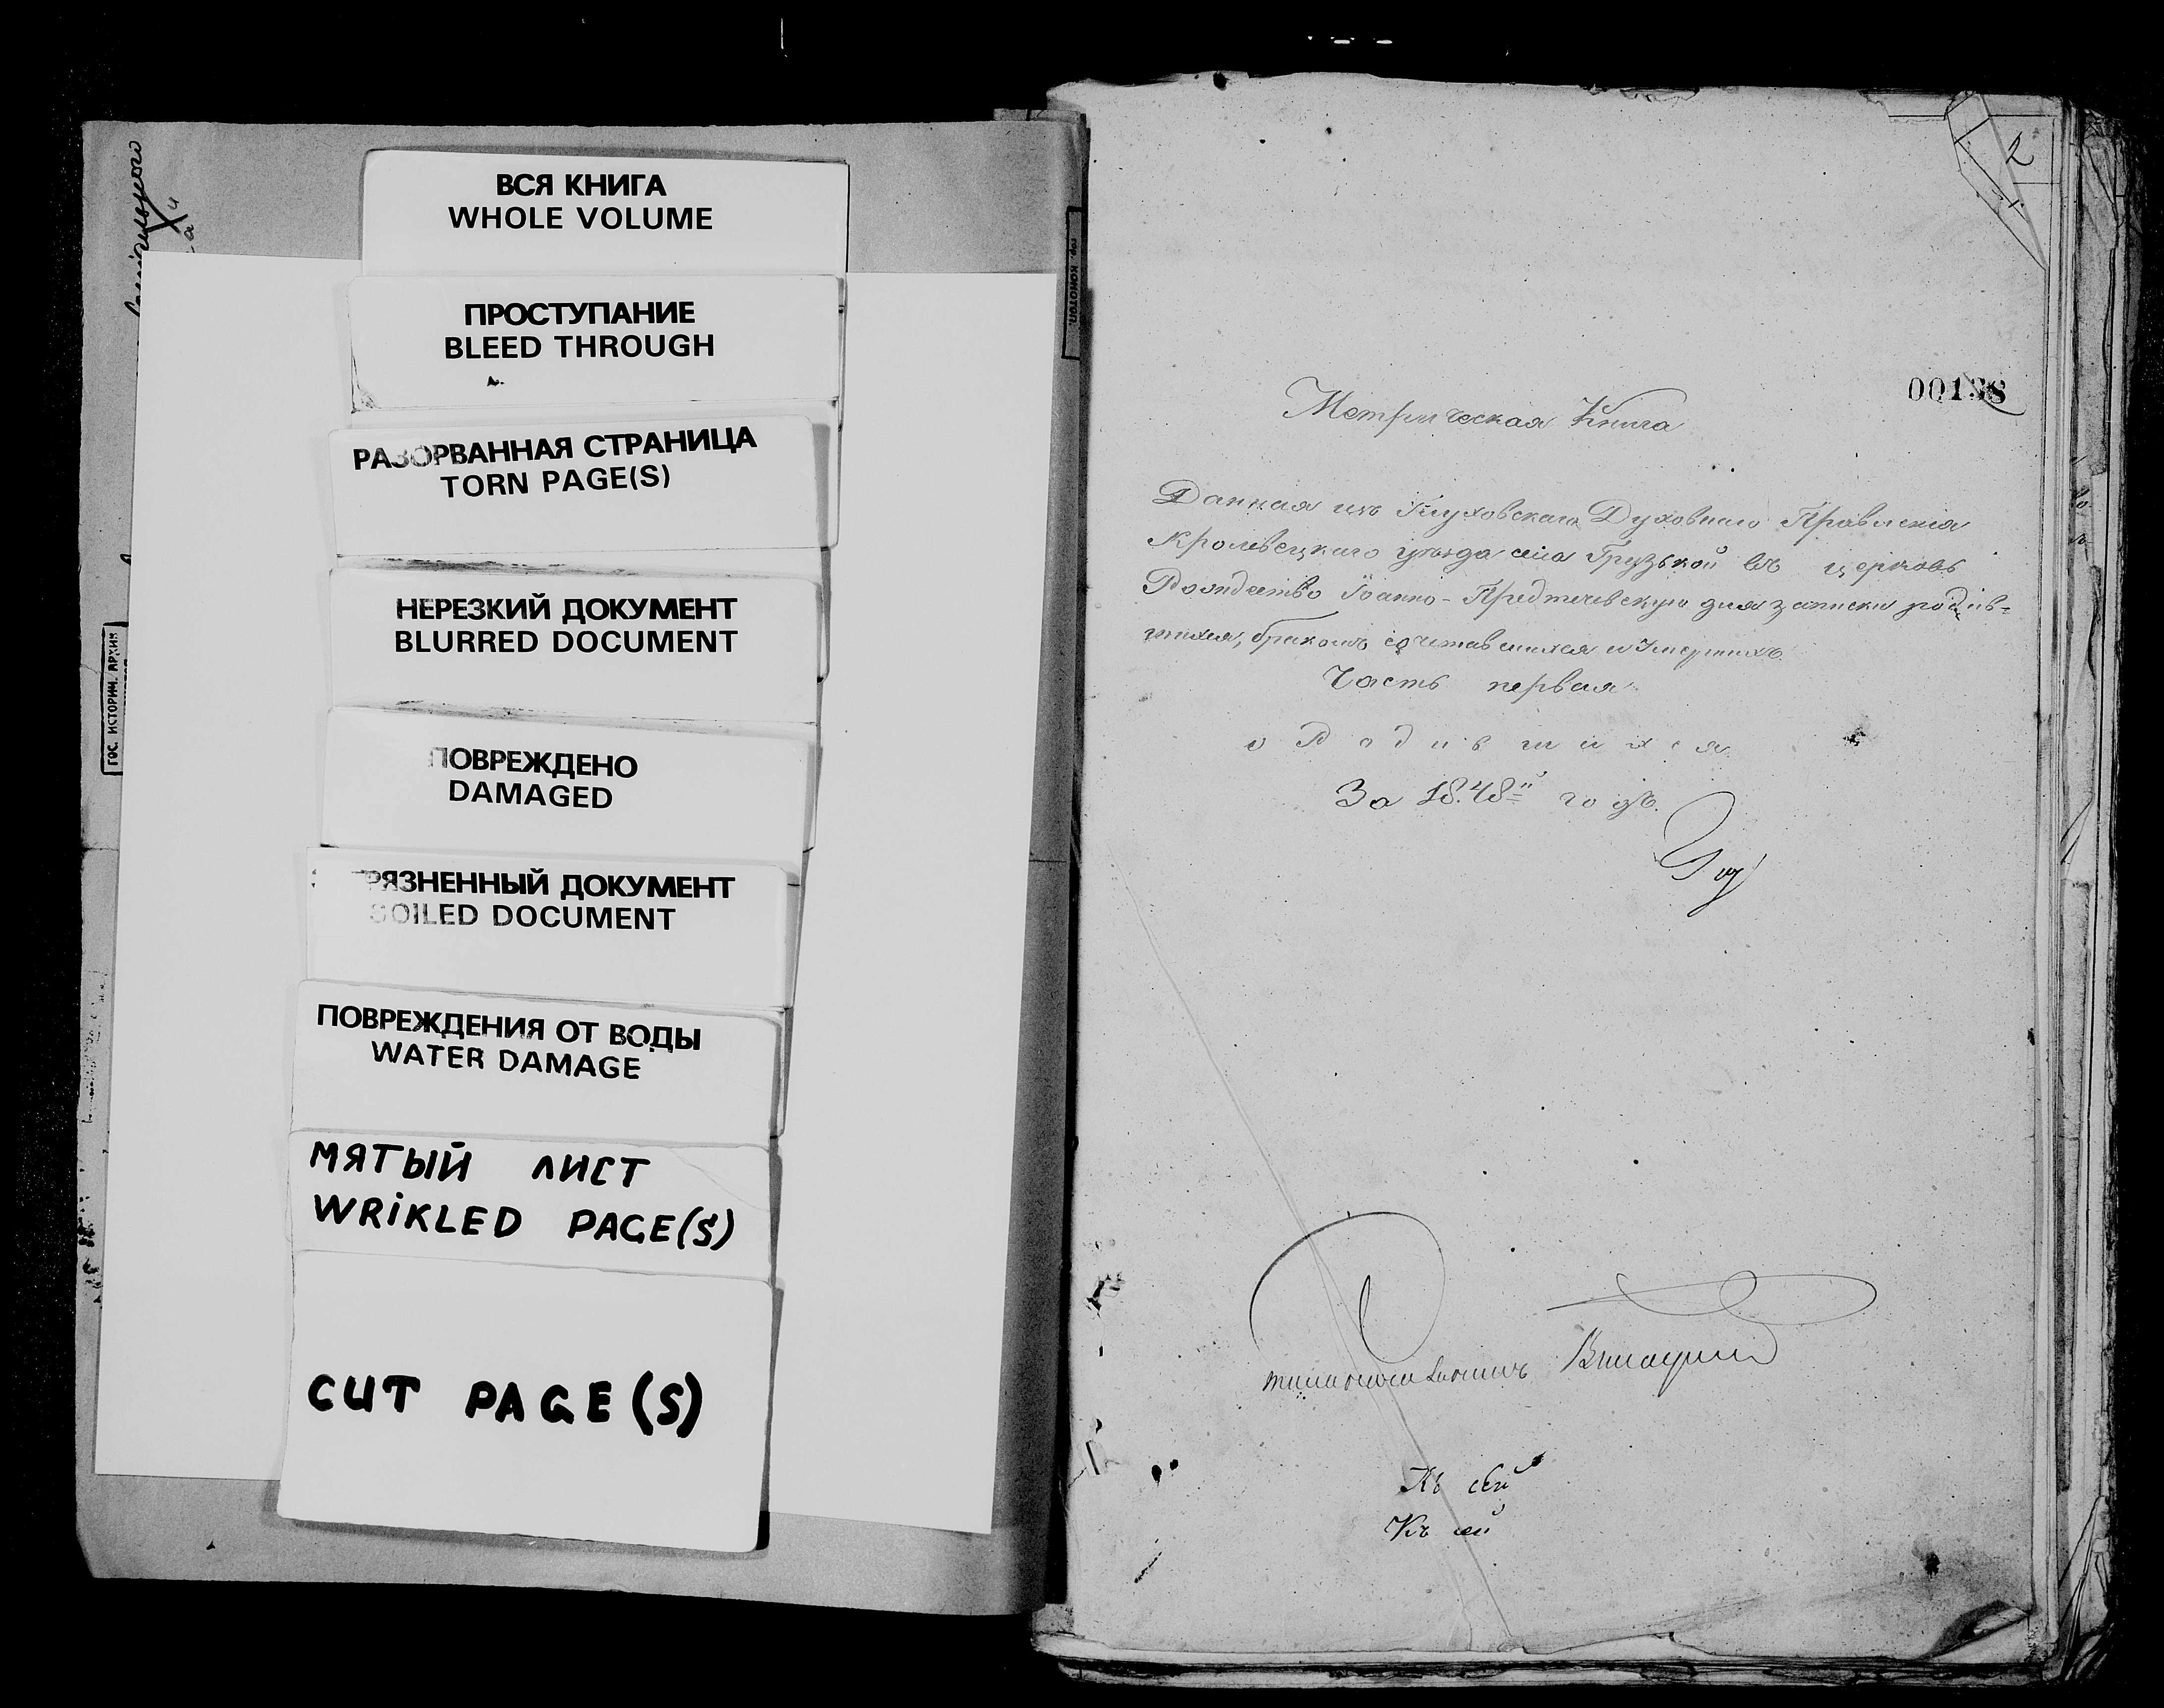 ВСЯ КНИГА
WHOLE VOLUME
ПРОСТУПАНИЕ
BLEED THROUGH
РАЗОРВАННАЯ СТРАНИЦА
TORN PAGE(S)
НЕРЕЗКИЙ ДОКУМЕНТ
BLURRED DOCUMENT
ПОВРЕЖДЕНО
DAMAGED
РЯЗНЕННЫЙ ДОКУМЕНТ
SOILED DOCUMENT
ПОВРЕЖДЕНИЯ ОТ ВОДЫ
WATER DAMAGE
МЯТЫЙ ЛИСТ
WRiKLED PAGE(S)
CUT PAGE(S)
ГОС. ИСТОРИЧ. АРХИВ
гор. КОНОТОП.
2
00138
Метрическая Книга
Данная изъ Глуховскаго Духовнаго Правления
Кролевецкаго уѣзда села Грузской въ церковь
Рождество Іоанно-Предтечевскую для записки родив=
шихся, бракомъ сочетавшихся и умершихъ
Часть первая
о Родившихся
За 1848й годъ.
Къ сей
Къ сей